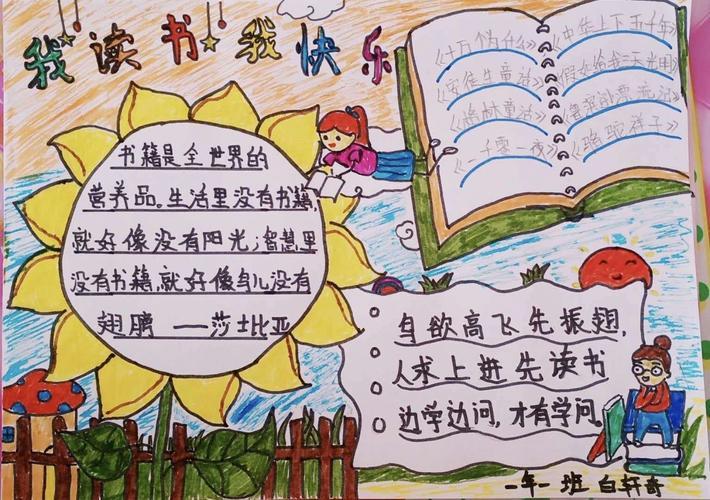 我读书我快乐
《十万个为什么》
《安徒生童话》
《格林童话》
《一千零一夜》
《中华上下五千年》
《假如给我三天光明》
《鲁宾孙漂流记》
《骆驼祥子》
书籍是全世界的
营养品。生活里没有书籍,
就好像没有阳光;智慧里
没有书籍,就好像鸟儿没有
翅膀 ——莎士比亚
鸟欲高飞先振翅,
人求上进先读书
边学边问,才有学问。
一年一班 白轩奇